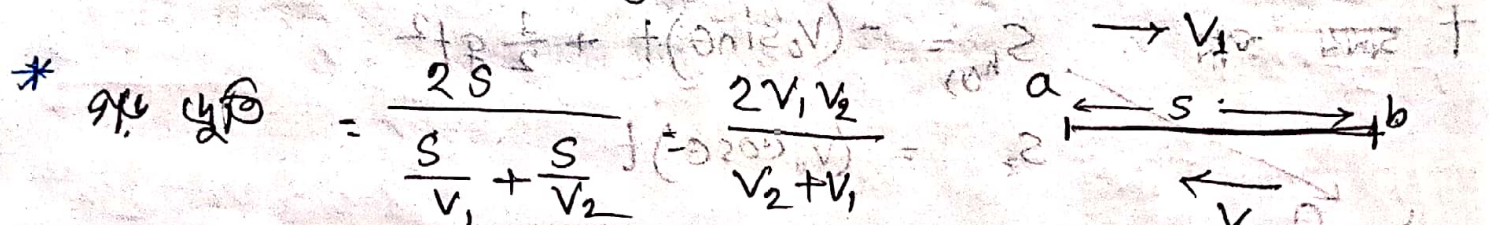 → V₁
* গড় দ্রুতি = 2S / (S/V₁ + S/V₂) = 2V₁V₂ / (V₂+V₁)
a ← S → b
← V